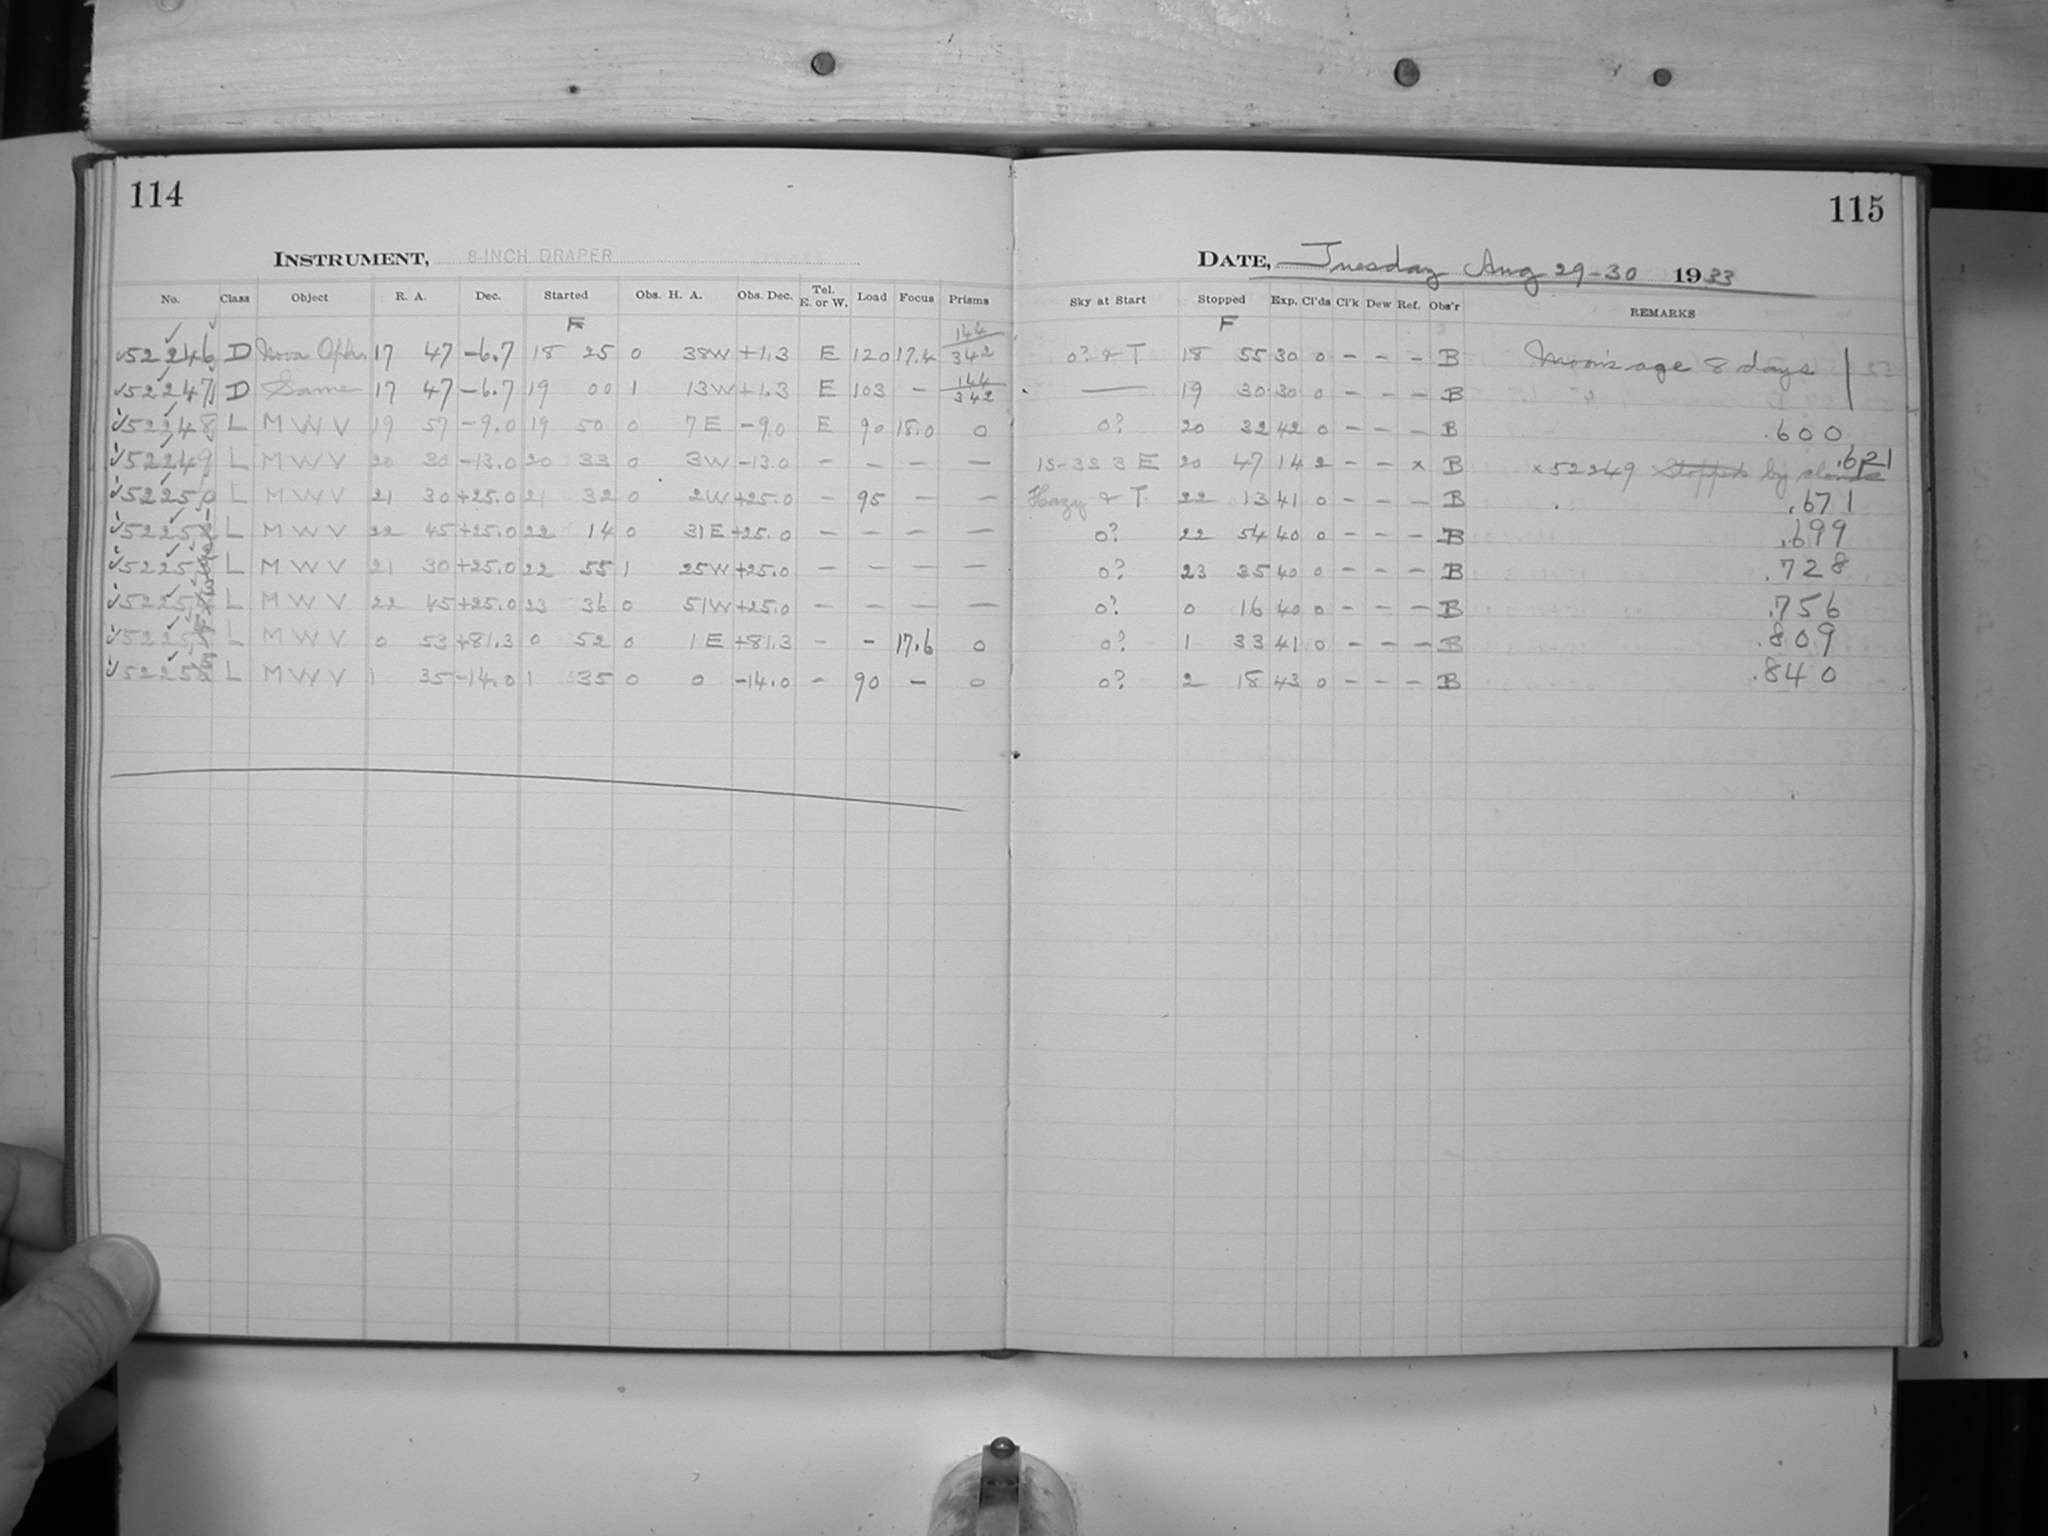 114
115
INSTRUMENT, 8-INCH DRAPER
DATE, Tuesday Aug 29-30 1933
No. Class Object R. A. Dec. Started Obs. H. A. Obs. Dec. Tel. E. or W. Load Focus Prisms Sky at Start Stopped Exp. Cl'ds Cl'k Dew Ref. Obs'r REMARKS
F F
52246 D Nova Oph. 17 47 -6.7 18 25 0 38W +1.3 E 120 17.4 144/342 0? & T 18 55 30 0 - - - B Moon's age 8 days
52247 D Same 17 47 -6.7 19 00 1 13W +1.3 E 103 - 144/342 — 19 30 30 0 - - - B
52248 L MWV 19 57 -9.0 19 50 0 7E -9.0 E 90 18.0 0 0? 20 32 42 0 - - - B .600
52249 L MWV 20 30 -13.0 20 33 0 3W -13.0 - - - - 1S-3S 3 E 20 47 14 2 - - x B x 52249 Stopped by clouds .621
52250 L MWV 21 30 +25.0 21 32 0 2W +25.0 - 95 - - Hazy & T 22 13 41 0 - - - B .671
5225 L MWV 22 45 +25.0 22 14 0 31E +25.0 - - - - 0? 22 54 40 0 - - - B .699
5225 L MWV 21 30 +25.0 22 55 1 25W +25.0 - - - - 0? 23 35 40 0 - - - B .728
5225 L MWV 22 45 +25.0 23 36 0 51W +25.0 - - - - 0? 0 16 40 0 - - - B .756
5225 L MWV 0 53 +81.3 0 52 0 1E +81.3 - - 17.6 0 0? 1 33 41 0 - - - B .809
5225 L MWV 1 35 -14.0 1 35 0 0 -14.0 - 90 - 0 0? 2 18 43 0 - - - B .840